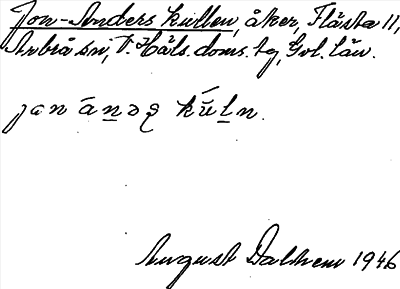 Jon-Anders kullen, åker, Flästa 11,
Arbrå sn, V. Häls. doms. tg, Gvl. län.
jan ánəʂ kúln.
August Dalhem 1946